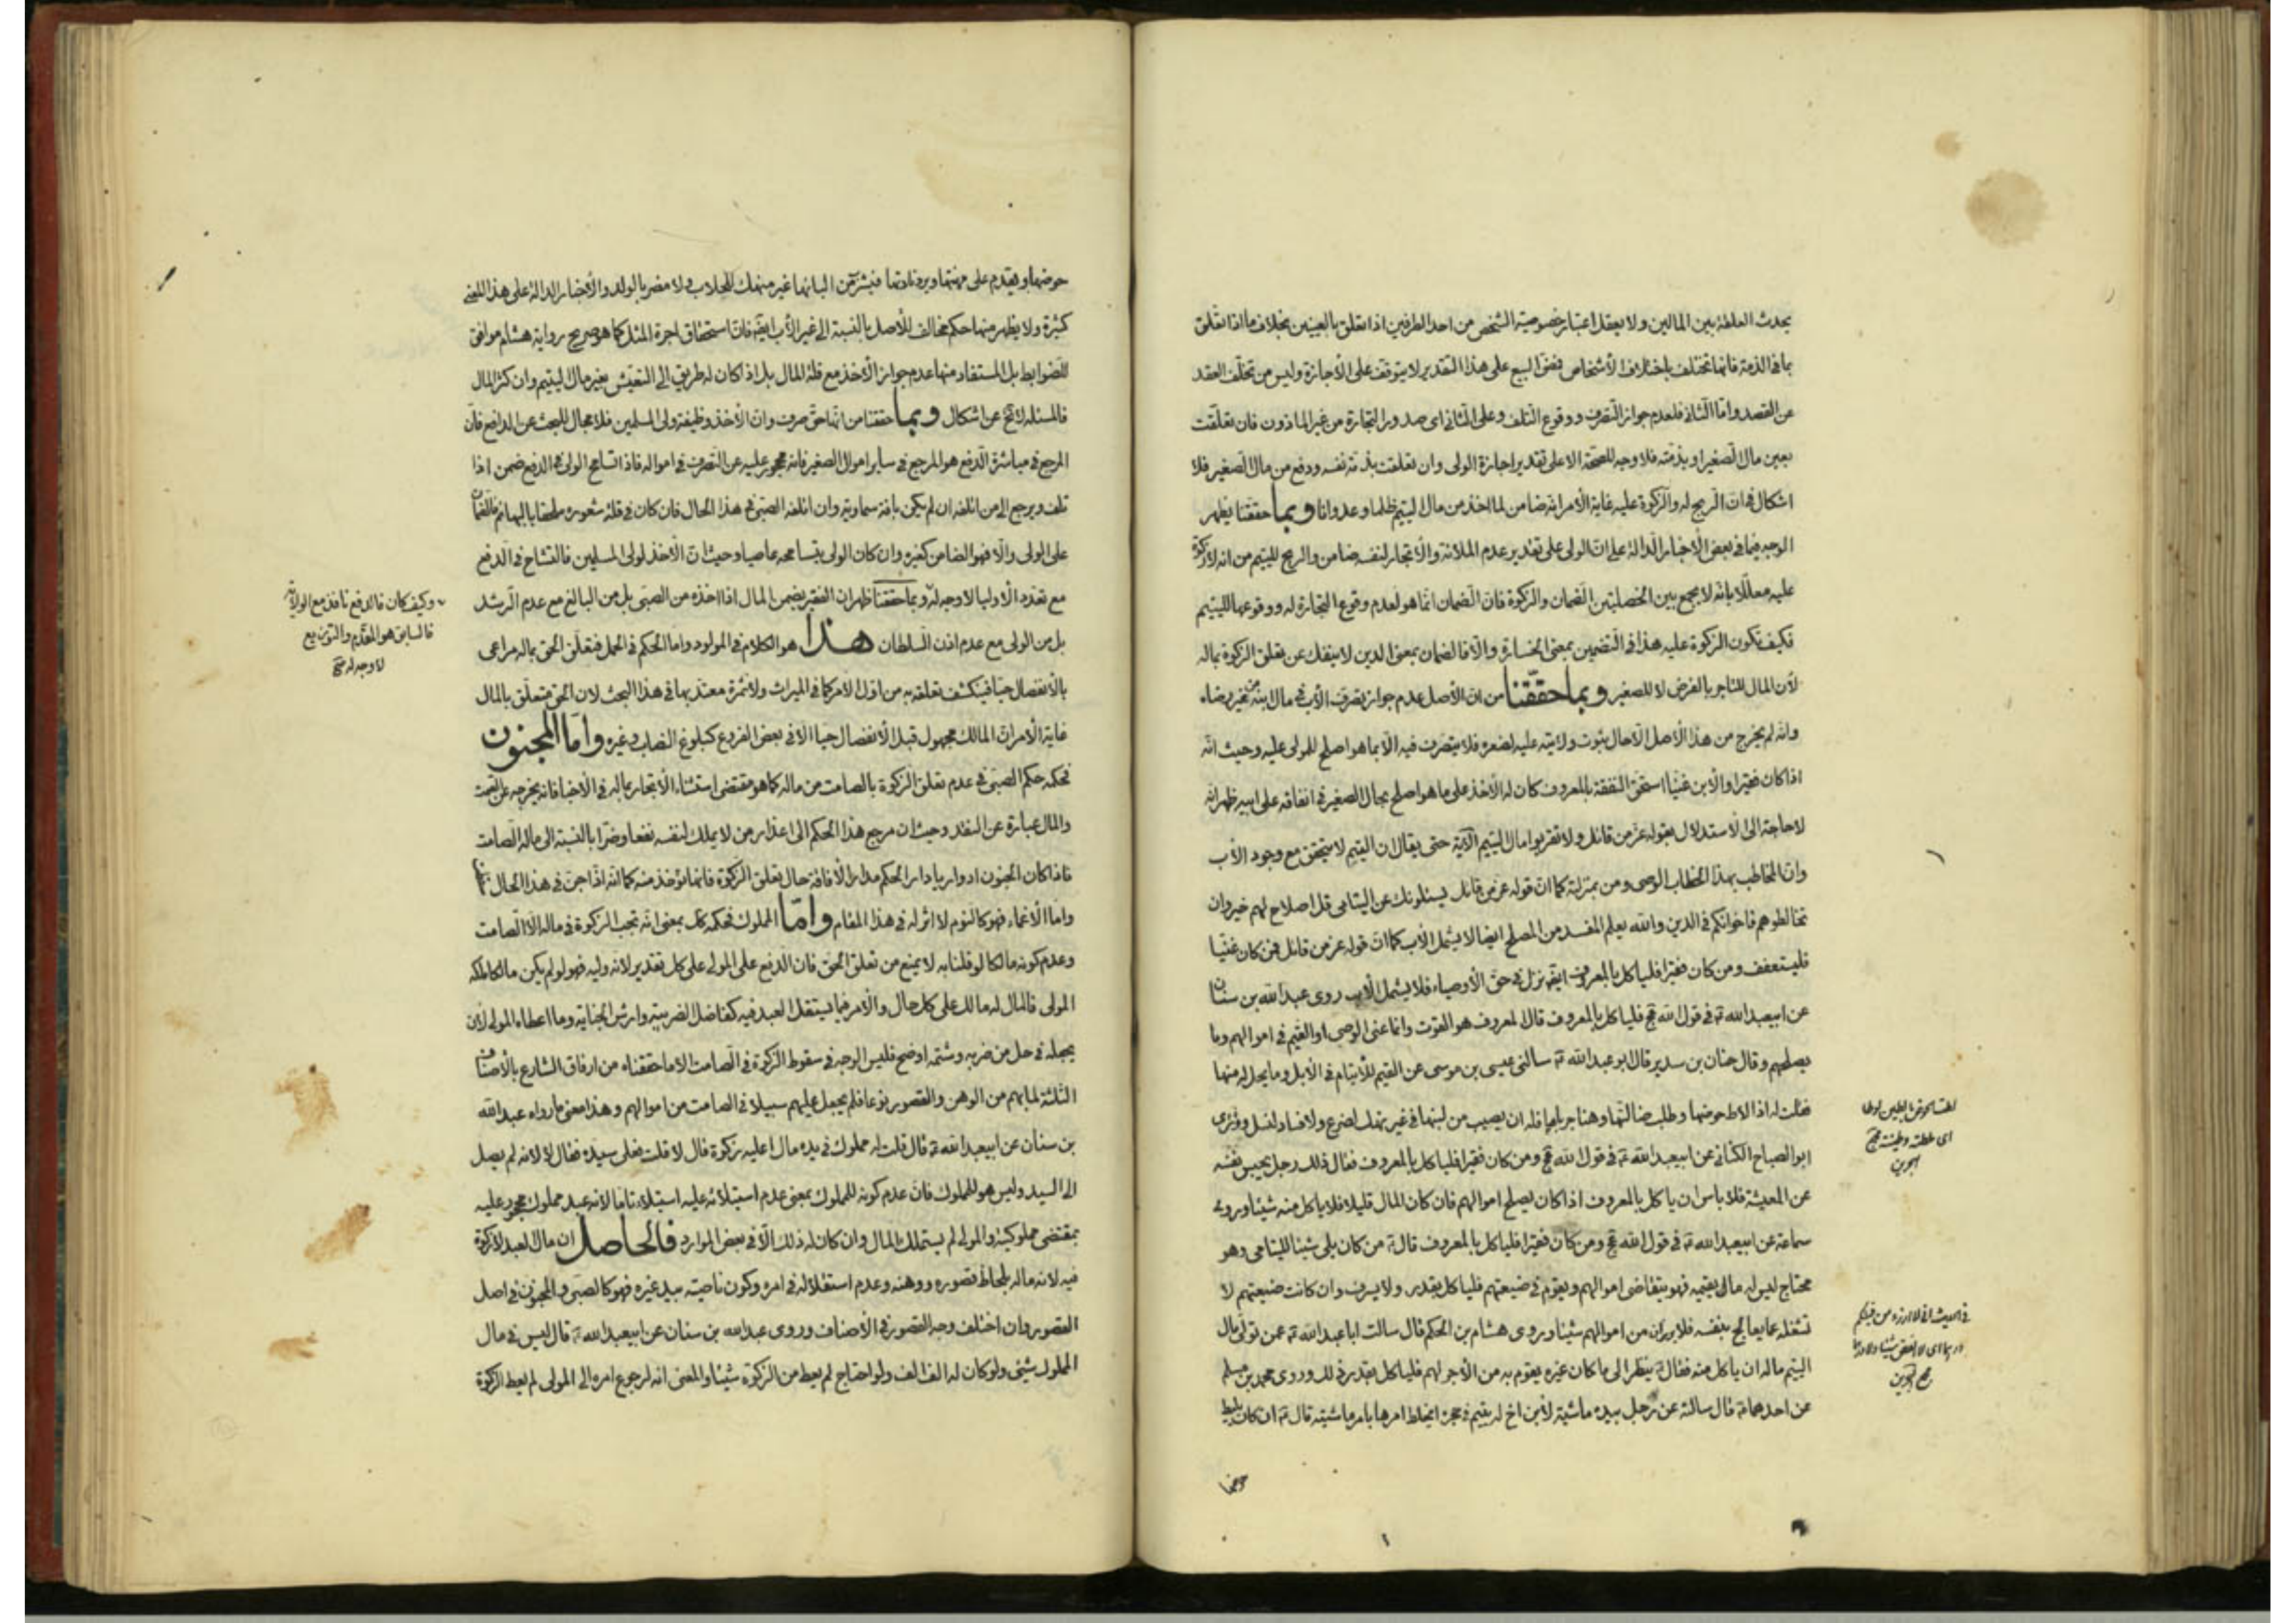 يحدث العلطة بين المالين ولا يعقل اعتبار خصوصية الشخص من احد الطرفين اذا تعلق بالعينين بخلاف ما اذا تعلق
بما في الذمة فانها تختلف باختلاف الأشخاص فنفي البيع على هذا التقدير لا يتوقف على الأجازة وليس من تخلف العقد
عن القصد وامّا الثاني فلعدم جواز التصرف ووقوع التلف وعلى الثاني اى صدور التجارة من غير الماذون فان تعلقت
بعين مال الصغير او بذمته فلا وجه للصحة الا على تقدير اجازة الولى وان تعلقت بذمّة نفسه ودفع من مال الصغير فلا
اشكال في انّ الربح له والزكوة عليه غاية الأمر انه ضامن لما اخذ من مال اليتيم ظلما وعدوانا وبما حققنا يظهر
الوجه فيما في بعض الأخبار الدالة على انّ الولى على تقدير عدم الملائة والأتجار لنفسه ضامن والربح لليتيم من انه لا زكوة
عليه معللا بانه لا يجمع بين الخصلتين الضمان والزكوة فانّ الضمان انّما هو لعدم وقوع التجارة له ووقوعها لليتيم
فكيف تكون الزكوة عليه هذا في التضمين بمعنى الخسارة والّا فالضمان بمعنى الدين لا ينفك عن تعلق الزكوة بماله
لأن المال للتاجر بالفرض لا للصغير وبما حققنا من انّ الأصل عدم جواز تصرف الأب في مال ابنه من غير رضاه
وانه لم يخرج من هذا الأصل الّا حال ثبوت ولايته عليه لصغره فلا يتصرف فيه الّا بما هو اصلح للمولى عليه وحيث انّه
اذا كان فقيرا والأبن غنيّا استحق النفقة بالمعروف كان له الأخذ على ما هو اصلح بحال الصغير في انفاقه على ابيه ظهر انه
لا حاجة الى الأستدلال بقوله عز من قائل ولا تقربوا مال اليتيم الآية حتى يقال ان اليتيم لا يتحقق مع وجود الأب
وانّ المخاطب بهذا الخطاب الوصى ومن بمنزلته كما انّ قوله عز من قائل يسئلونك عن اليتامى قل اصلاح لهم خير وان
تخالطوهم فاخوانكم في الدين والله يعلم المفسد من المصلح ايضا لا يشمل الأب كما انّ قوله عز من قائل فمن كان غنيّا
فليستعفف ومن كان فقيرا فليأكل بالمعروف ايضه نزل في حق الأوصياء فلا يشمل الأب روى عبد الله بن سنان
عن ابيعبد الله ع في قول الله عج فليأكل بالمعروف قال المعروف هو القوت وانما عنى الوصى او القيم في اموالهم وما
يصلحهم وقال حنان بن سدير قال ابو عبد الله ع سالنى عيسى بن موسى عن القيم للأيتام في الأبل وما يحل له منها
فقلت له اذا لاط حوضها وطلب ضالتها وهنا جرباها فله ان يصيب من لبنها في غير نهك لضرع ولا فساد لنسل وروى
ابو الصباح الكنانى عن ابيعبد الله ع في قول الله عج ومن كان فقيرا فليأكل بالمعروف فقال ذلك رجل يحبس نفسه
عن المعيشة فلا باس ان ياكل بالمعروف اذا كان يصلح اموالهم فان كان المال قليلا فلا ياكل منه شيئا وروى
سماعة عن ابيعبد الله ع في قول الله عج ومن كان فقيرا فليأكل بالمعروف قال ع من كان يلى شيئا لليتامى وهو
محتاج ليس له مال يقيمه فهو يتقاضى اموالهم ويقوم في ضيعتهم فليأكل بقدر ولا يسرف وان كانت ضيعتهم لا
تشغله عما يعالج بنفسه فلا يرزأن من اموالهم شيئا وروى هشام بن الحكم قال سالت ابا عبد الله ع عمن تولى مال
اليتيم ماله ان ياكل منه فقال ع ينظر الى ما كان غيره يقوم به من الأجر لهم فليأكل بقدر ذلك وروى محمد بن مسلم
عن احدهما ع قال سالته عن رجل بيده ماشية لأبن اخ له يتيم في حجره ايخلط امرها بامر ماشيته قال ع ان كان يليط
حوضها
اى ملطته وطينته مجمع
البحرين
مجمع البحرين
حوضها ويقوم على مهنتها ويرد نادتها فيشرب من البانها غير منهك للحلاب ولا مضر بالولد والأخبار الدالة على هذا المعنى
كثيرة ولا يظهر منها حكم مخالف للأصل بالنسبة الى غير الأب ايضه فانّ استحقاق اجرة المثل كما هو صريح رواية هشام موافق
للضوابط بل المستفاد منها عدم جواز الأخذ مع قلة المال بل اذا كان له طريق الى التعيّش بغير مال اليتيم وان كثر المال
فالمسئلة لا تخ عن اشكال وبما حققنا من انها حق صرف وانّ الأخذ وظيفة ولى المسلمين فلا مجال للبحث عن الدافع فانّ
المرجع في مباشرة الدفع هو المرجع في ساير اموال الصغير فانه محجور عليه عن التصرف في امواله فاذا تسامح الولى في الدفع ضمن اذا
تلف ويرجع الى من اتلفه ان لم يكن بافة سماوية وان اتلفه الصبى في هذا الحال فان كان في قلة شعوره ملحقا بالبهائم فالضمان
على الولى والّا فهو الضامن كغيره وان كان الولى بتسامحه عاصيا وحيث انّ الأخذ لولى المسلمين فالتشاح في الدفع
مع تعدد الأوليا لا وجه له وبما حققنا ظهر ان الفقير يضمن المال اذا اخذه من الصبى بل من البالغ مع عدم الرشد
بل من الولى مع عدم اذن السلطان هذا هو الكلام في المولود واما الحكم في الحمل فتعلق الحق بماله مراعى
بالأنفصال حيا فينكشف تعلقه به من اول الأمر كما في الميراث ولا ثمرة معتد بها في هذا البحث لان الحق متعلق بالمال
غاية الأمر انّ المالك مجهول قبل الأنفصال حيا الّا في بعض الفروع كبلوغ النصاب وغيره وامّا المجنون
فحكمه حكم الصبى في عدم تعلق الزكوة بالصامت من ماله كما هو مقتضى استثناء الأتجار بماله في الأخبار فانه يخرجه عن الصمت
والمال عبارة عن النقد وحيث ان مرجع هذا الحكم الى اعذار من لا يملك لنفسه نفعا وضرا بالنسبة الى ماله الصامت
فاذا كان الجنون ادواريا دار الحكم مدار الأفاقة حال تعلق الزكوة فانها تؤخذ منه كما انه اذا جن في هذا الحال
واما الأغماء فهو كالنوم لا اثر له في هذا المقام وامّا المملوك فحكمه كك بمعنى انه تجب الزكوة في ماله الّا الصامت
وعدم كونه مالكا لو قلنا به لا يمنع من تعلق الحق فان الدفع على المولى على كل تقدير لانه وليه فهو لو لم يكن مالكا ملكه
المولى فالمال له مالك على كل حال والأمر فيما يستقل العبد فيه كفاضل الضريبة وارش الجناية وما اعطاه المولى لأن
يجعله في حل من ضربه وشتمه اوضح فليس الوجه في سقوط الزكوة في الصامت الا ما حققناه من ارفاق الشارع بالأصناف
الثلثة لما بهم من الوهن والقصور نوعا فلم يجعل عليهم سبيلا في الصامت من اموالهم وهذا معنى ما رواه عبد الله
بن سنان عن ابيعبد الله ع قال قلت له مملوك في يده مال اعليه زكوة قال لا قلت فعلى سيده فقال لا لانه لم يصل
الى السيد وليس هو للمملوك فانّ عدم كونه للمملوك بمعنى عدم استيلائه عليه استيلاء تاما لانه عبد مملوك محجور عليه
بمقتضى مملوكيته والمولى لم يستملك المال وان كان له ذلك الّا في بعض الموارد فالحاصل ان مال العبد لا زكوة
فيه لانه ماله بلحاظ قصوره ووهنه وعدم استقلاله في امره وكون ناصيته بيد غيره فهو كالصبى والمجنون في اصل
القصور وان اختلف وجه القصور في الأصناف وروى عبد الله بن سنان عن ابيعبد الله ع قال ليس في مال
المملوك شئ ولو كان له الف الف ولو احتاج لم يعط من الزكوة شيئا والمعنى انه لرجوع امره الى المولى لم يعط الزكوة
وكيف كان فالدفع نافذ مع الولاية
فالسابق هو المقدم والتوزيع
لا وجه له صح